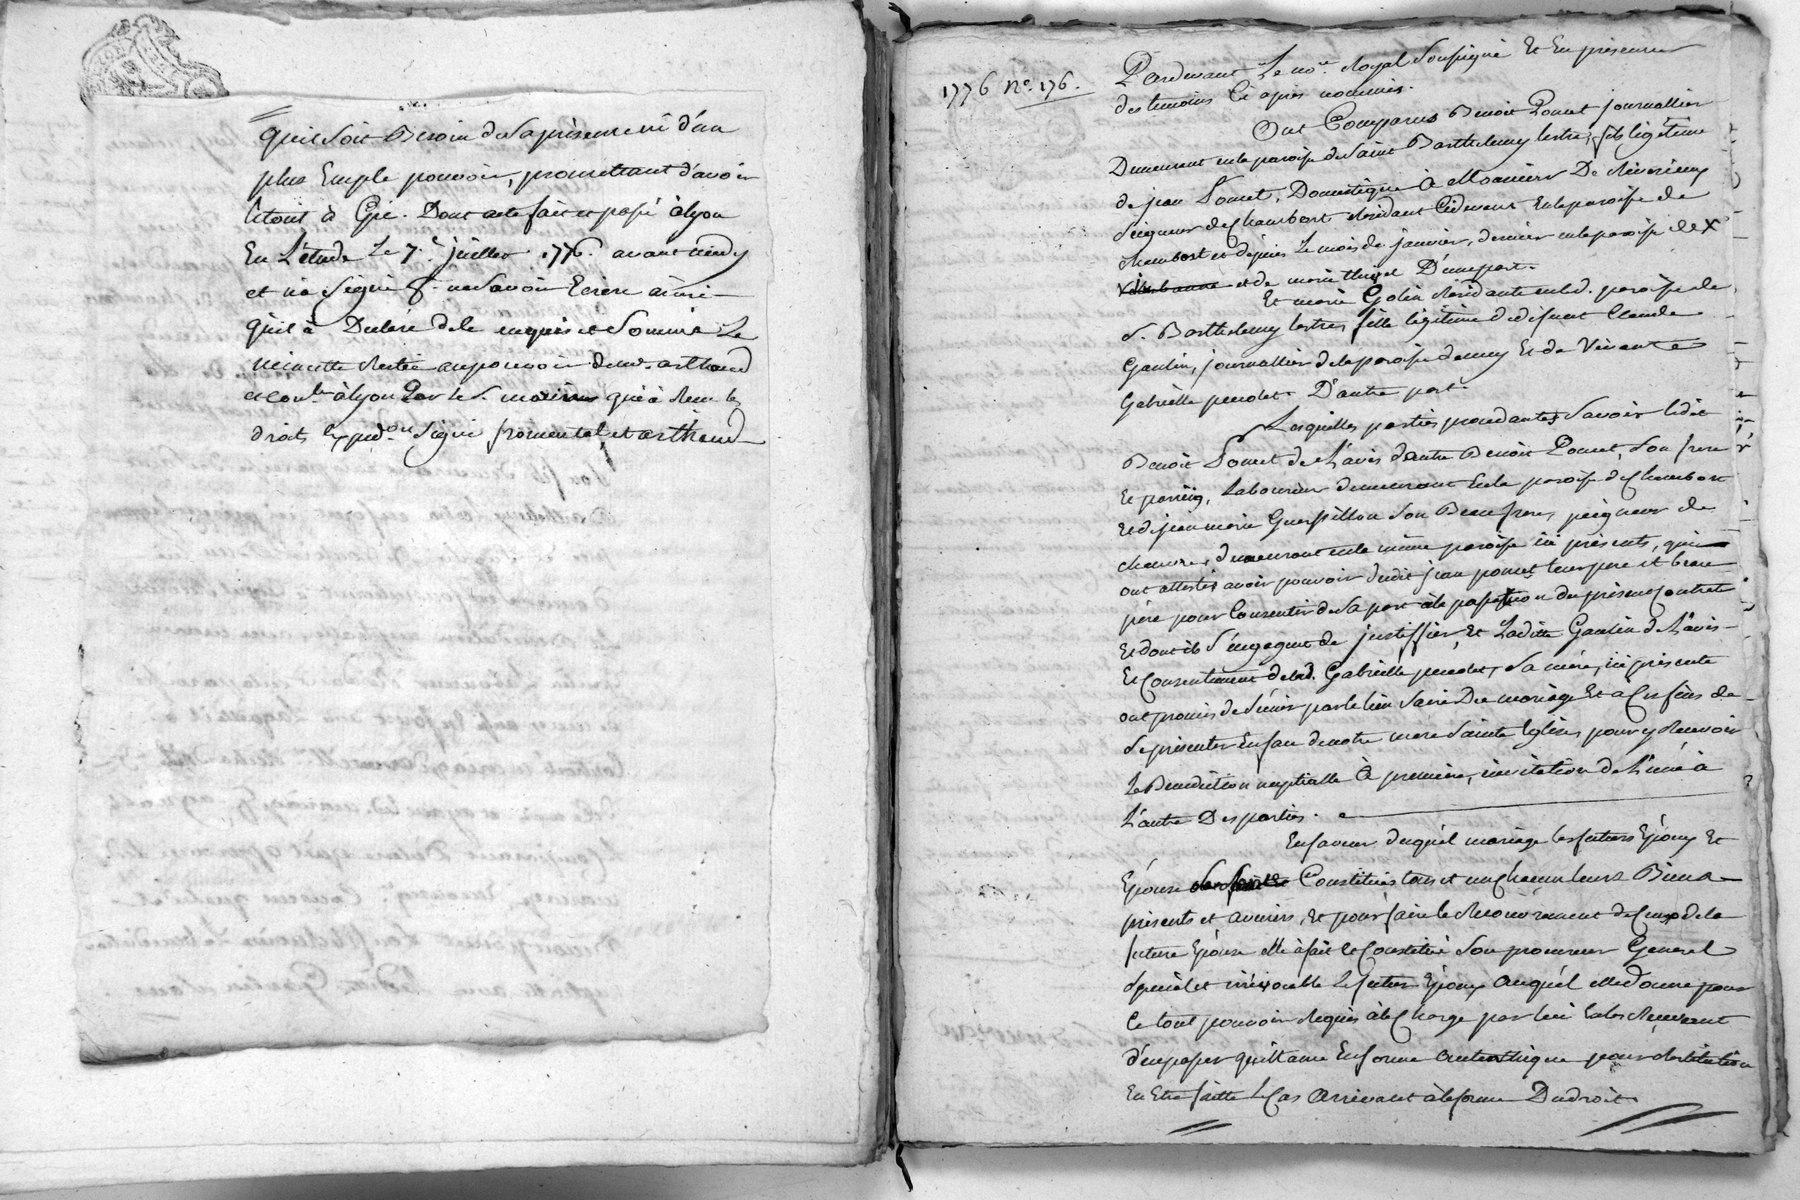 qu'il soit Besoin de sa présence ni d'un
plus Emple pouvoir, promettant d'avoir
le tout à Gré. Dont acte fait et passé à lyon
En L'étude Le 7e. juillet 1776. avant midy
et n'a signé pr. ne savoir Ecrire ainsi
qu'il à Declaré de ce enquis et sommé La
minutte Restée au pouvoir de me. arthaud
et conlé. à lyon Par le s. qui à Reçu les
droits, Expedon. Signé fromental, et arthaud
1776 No. 176.
Pardevant Le nore. Royal soussigné Et En présence
des temoins Ci après nommés.
Ont Comparus Benoit Poncet journallier
Demeurant en la paroisse de Saint Barthelemy lestra, fils légitime
de jean Poncet, Domestique à Monsieur De Riverieux
Seigneur de Chambost Résidant Cidevant En la paroisse de
chambost et depuis Le mois de janvier, dernier en la paroisse de X
villeurbanne et de marie thivel D'une part.
Et marie Golin Résidante en lad. paroisse de
S. Barthelemy lestra, fille légitime de defunt Claude
Gaulin, journallier de la paroisse de et de Vivante
Gabrielle D'autre part.
Lesquelles parties procedantes Savoir ledit
Benoit Poncet de L'avis d'autre Benoit Poncet, Son frere
Et parrein, Laboureur demeurant En la paroisse de Chambost
Et de jean marie Guerpillon son Beaufrere, peigneur de
chanvre, demeurant en la même paroisse ici présents, qui
ont attestés avoir pouvoir dudit jean poncet leur pere et beau
pere pour Consentir de sa part à la passation du présent Contrat
Et dont ils s'engagent de justiffier, Et Laditte Gaulin de L'avis
Et Consentement de lad. Gabrielle sa mére, ici présente
ont promis de s'unir par le lien Sacré De mariage Et a Ces fins de
se présenter En face de notre mère Sainte Eglise, pour y Recevoir
La Benediction nuptialle à première, invitation de L'une à
L'autre Des parties.
En faveur duquél mariage les futurs Epoux Et
Epouse se sont Constitués tous et un chacun leurs Biens
présents et avenirs, Et pour faire le Recouvrement de Ceux de la
future Epouse elle à fait et Constitué son procureur General
Spécial et irrévocable Le futur Epoux auquél elle donne pour
Ce tout pouvoir Requis à la Charge par lui En les Recevant
d'en passer quittance En forme autenthique pour Restitution
En Etre faitte Le Cas arrivant à la forme Du droit.